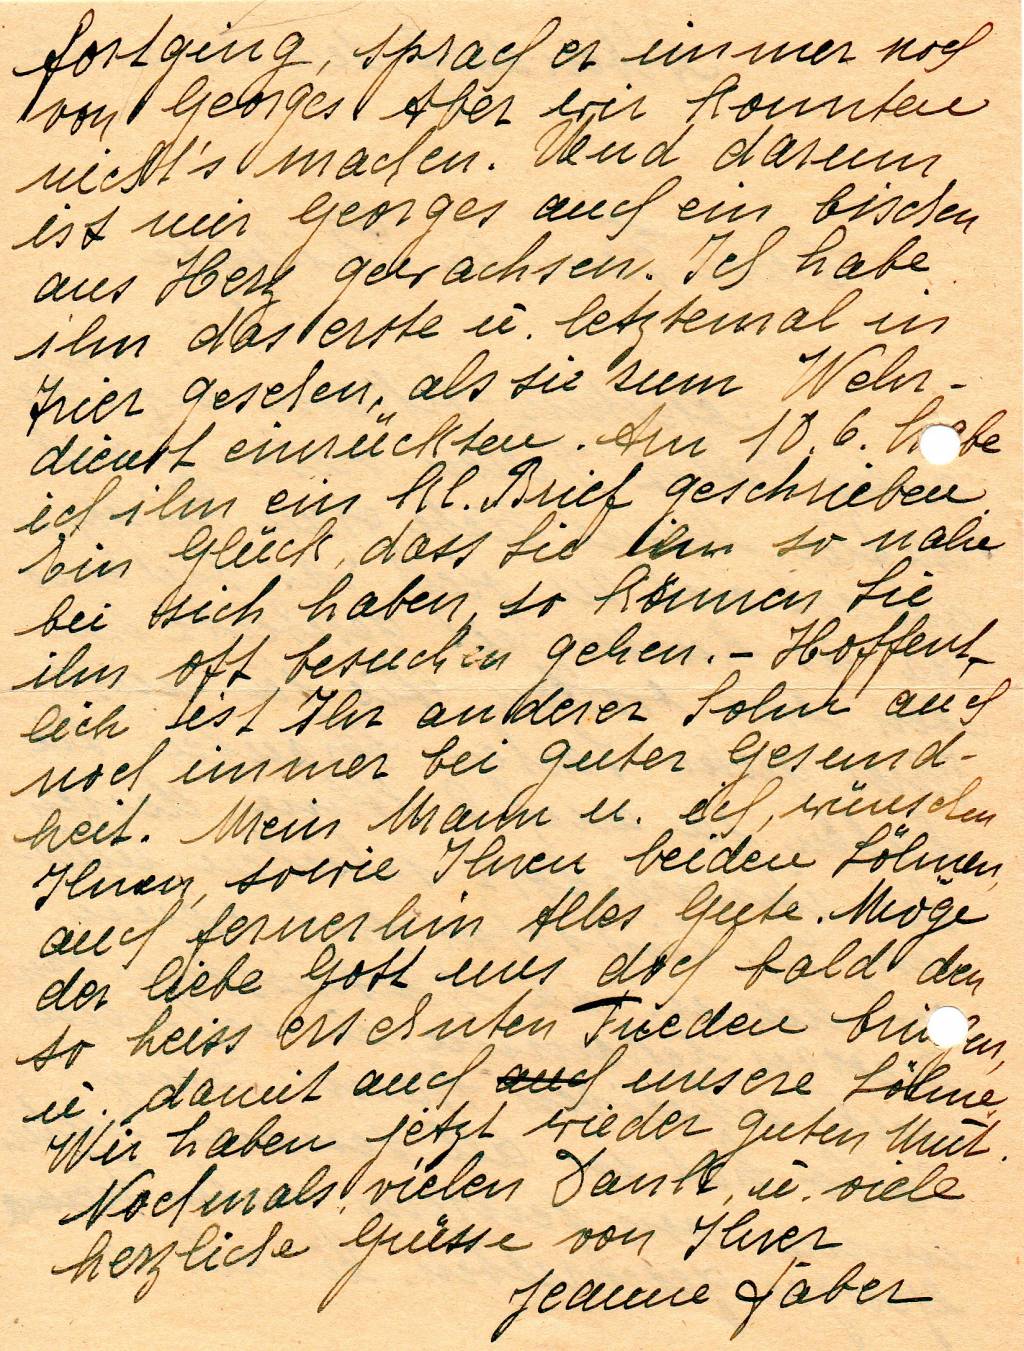 fortging, sprach er immer noch
von Georges. Aber wir konnten
nicht's machen. Und darum
ist mir Georges auch ein bischen
ans Herz gewachsen. Ich habe
ihn das erste u. letztemal in
Trier gesehen, als sie zum Wehr-
dienst einrückten. Am 10.6. habe
ich ihm ein kl. Brief geschrieben.
Ein Glück, dass Sie ihn so nahe
bei sich haben, so können Sie
ihn oft besuchen gehen. – Hoffent-
lich ist Ihr anderer Sohn auch
noch immer bei guter Gesund-
heit. Mein Mann u. ich, wünschen
Ihnen, sowie Ihren beiden Söhnen,
auch fernerhin Alles Gute. Möge
der liebe Gott uns doch bald den
so heiss ersehnten Frieden bringen,
u. damit auch auch unsere Söhne.
Wir haben jetzt wieder guten Mut.
Nochmals vielen Dank, u. viele
herzliche Grüsse von Ihrer
Jeanne Faber